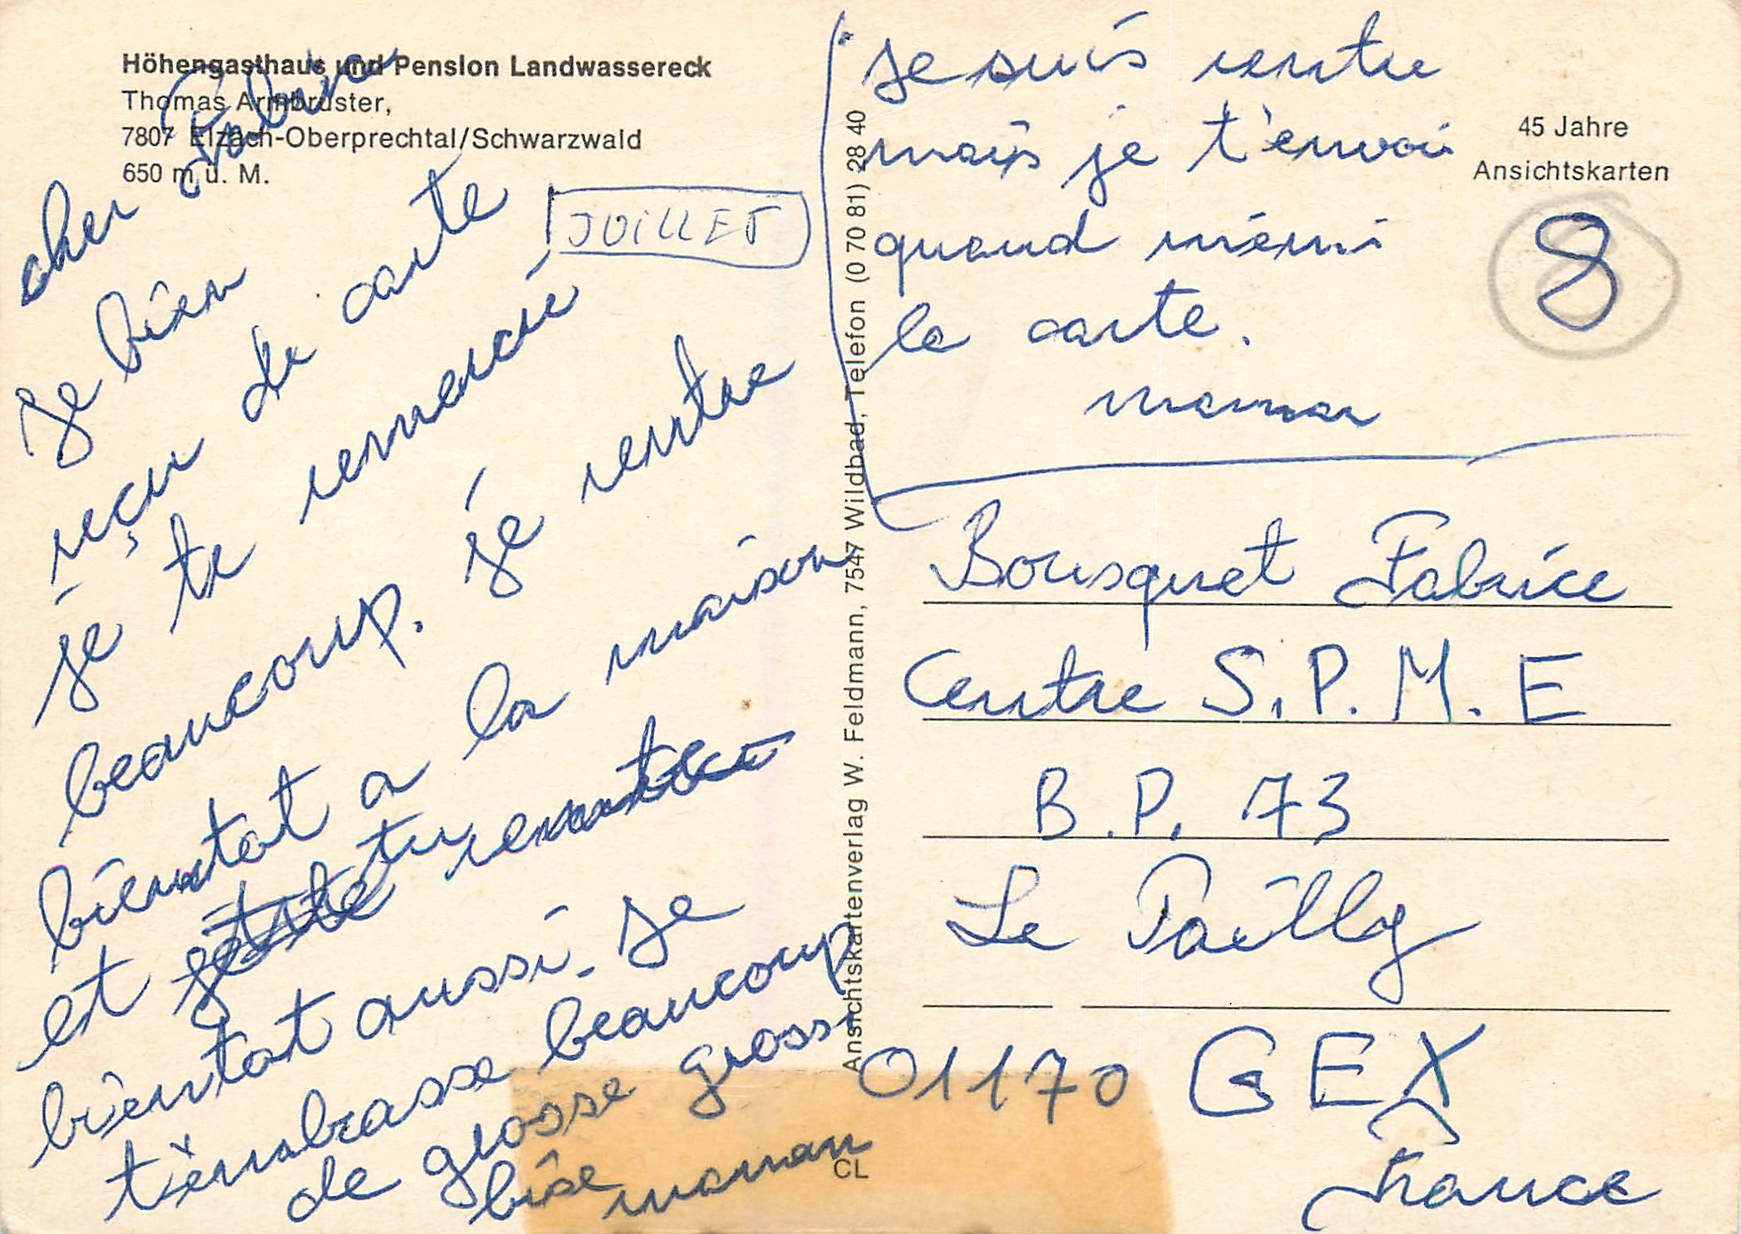 Höhengasthaus und Pension Landwassereck
Thomas Armbruster,
7807 Elzach-Oberprechtal/Schwarzwald
650 m ü. M.
JUILLET
cher Fabrice
Je bien
reçu de carte
je te remercie
beaucoup. je rentre
bientot a la maison
et tu
bientot aussi. Je
t'embrasse beaucoup
de grosse grosse
bise maman
Ansichtskartenverlag W. Feldmann, 7547 Wildbad, Telefon (0 70 81) 28 40
CL
je suis rentre
mais je t'envoi
quand même
la carte.
maman
45 Jahre
Ansichtskarten
8
Bousquet Fabrice
Centre S.P.M.E
B.P. 73
Le Pailly
01170 GEX
France